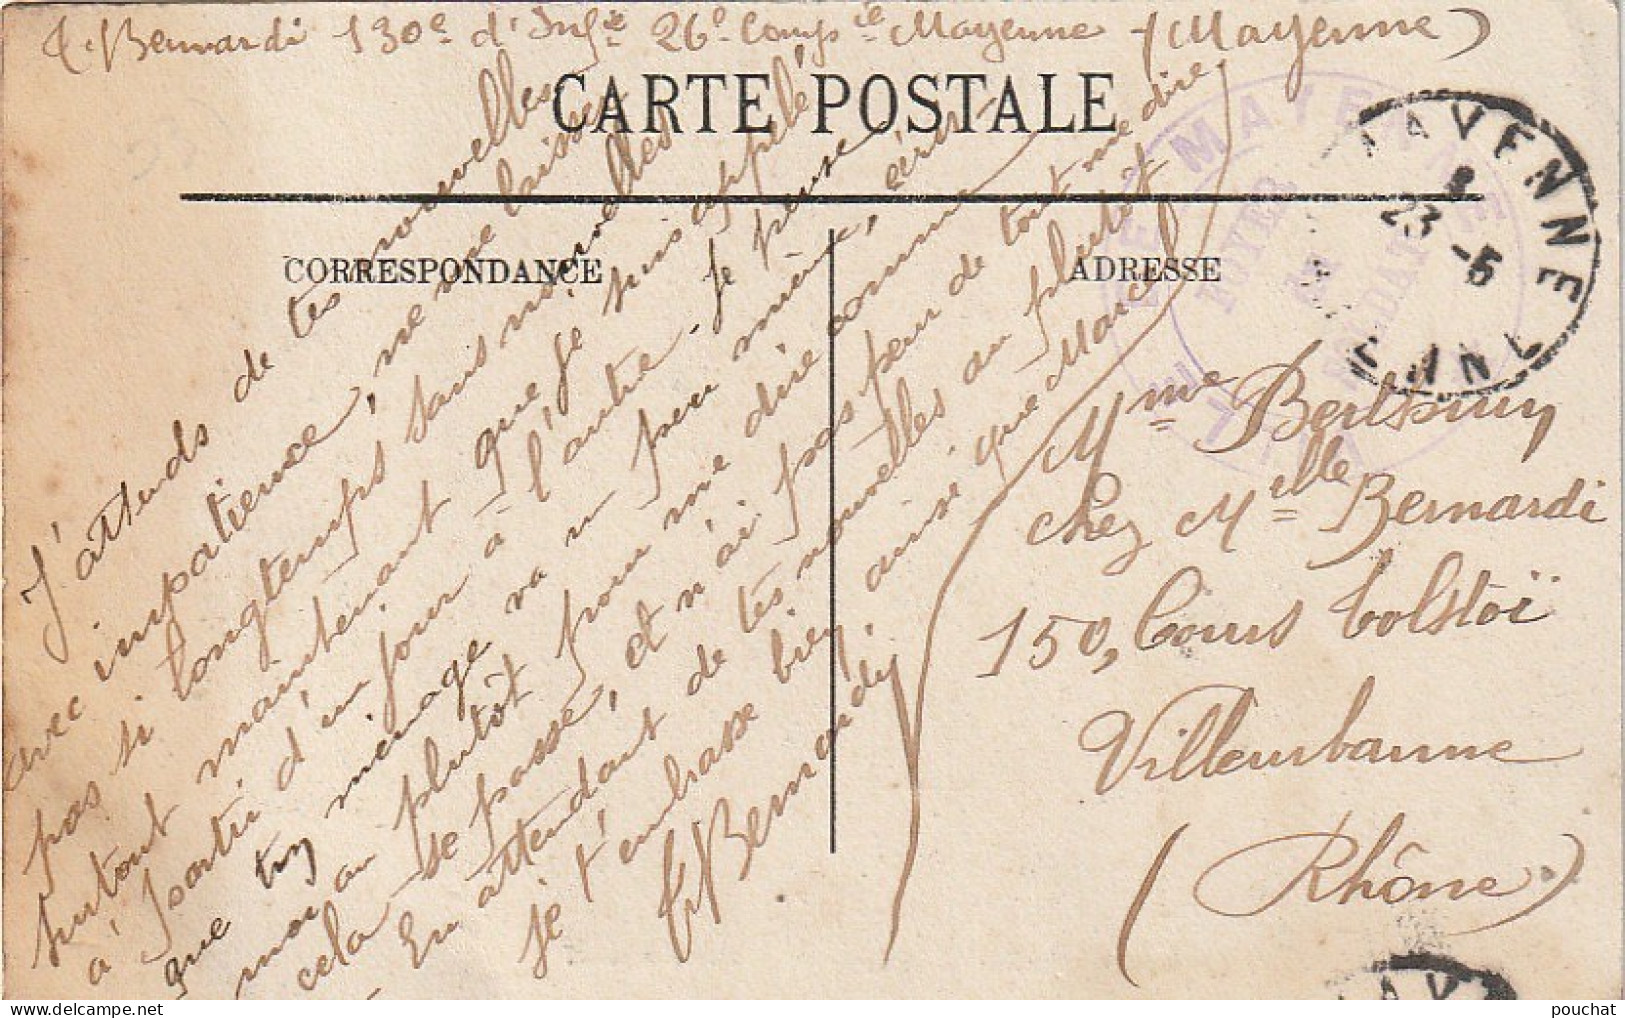 Bernardi 130e d'Infie 26e Compie Mayenne (Mayenne)
CARTE POSTALE
CORRESPONDANCE
ADRESSE
J'attends de tes nouvelles
avec impatience, ne me laisse
pas si longtemps sans nouvelles
surtout maintenant que je suis appelé
à partir d'un jour à l'autre. Je pense
que ton ménage va un peu mieux, écris
moi au plutôt pour me dire comme
cela se passe, et n'ai pas peur de tout me dire.
En attendant de tes nouvelles au plutôt
je t'embrasse bien, ainsi que Marcel
Bernardi
Mme
chez Melle Bernardi
150, Cours Tolstoï
Villeurbanne
(Rhône)
MAYENNE
23 -5
MAYENNE
FOYER
DU
SOLDAT
MAY
pouchat